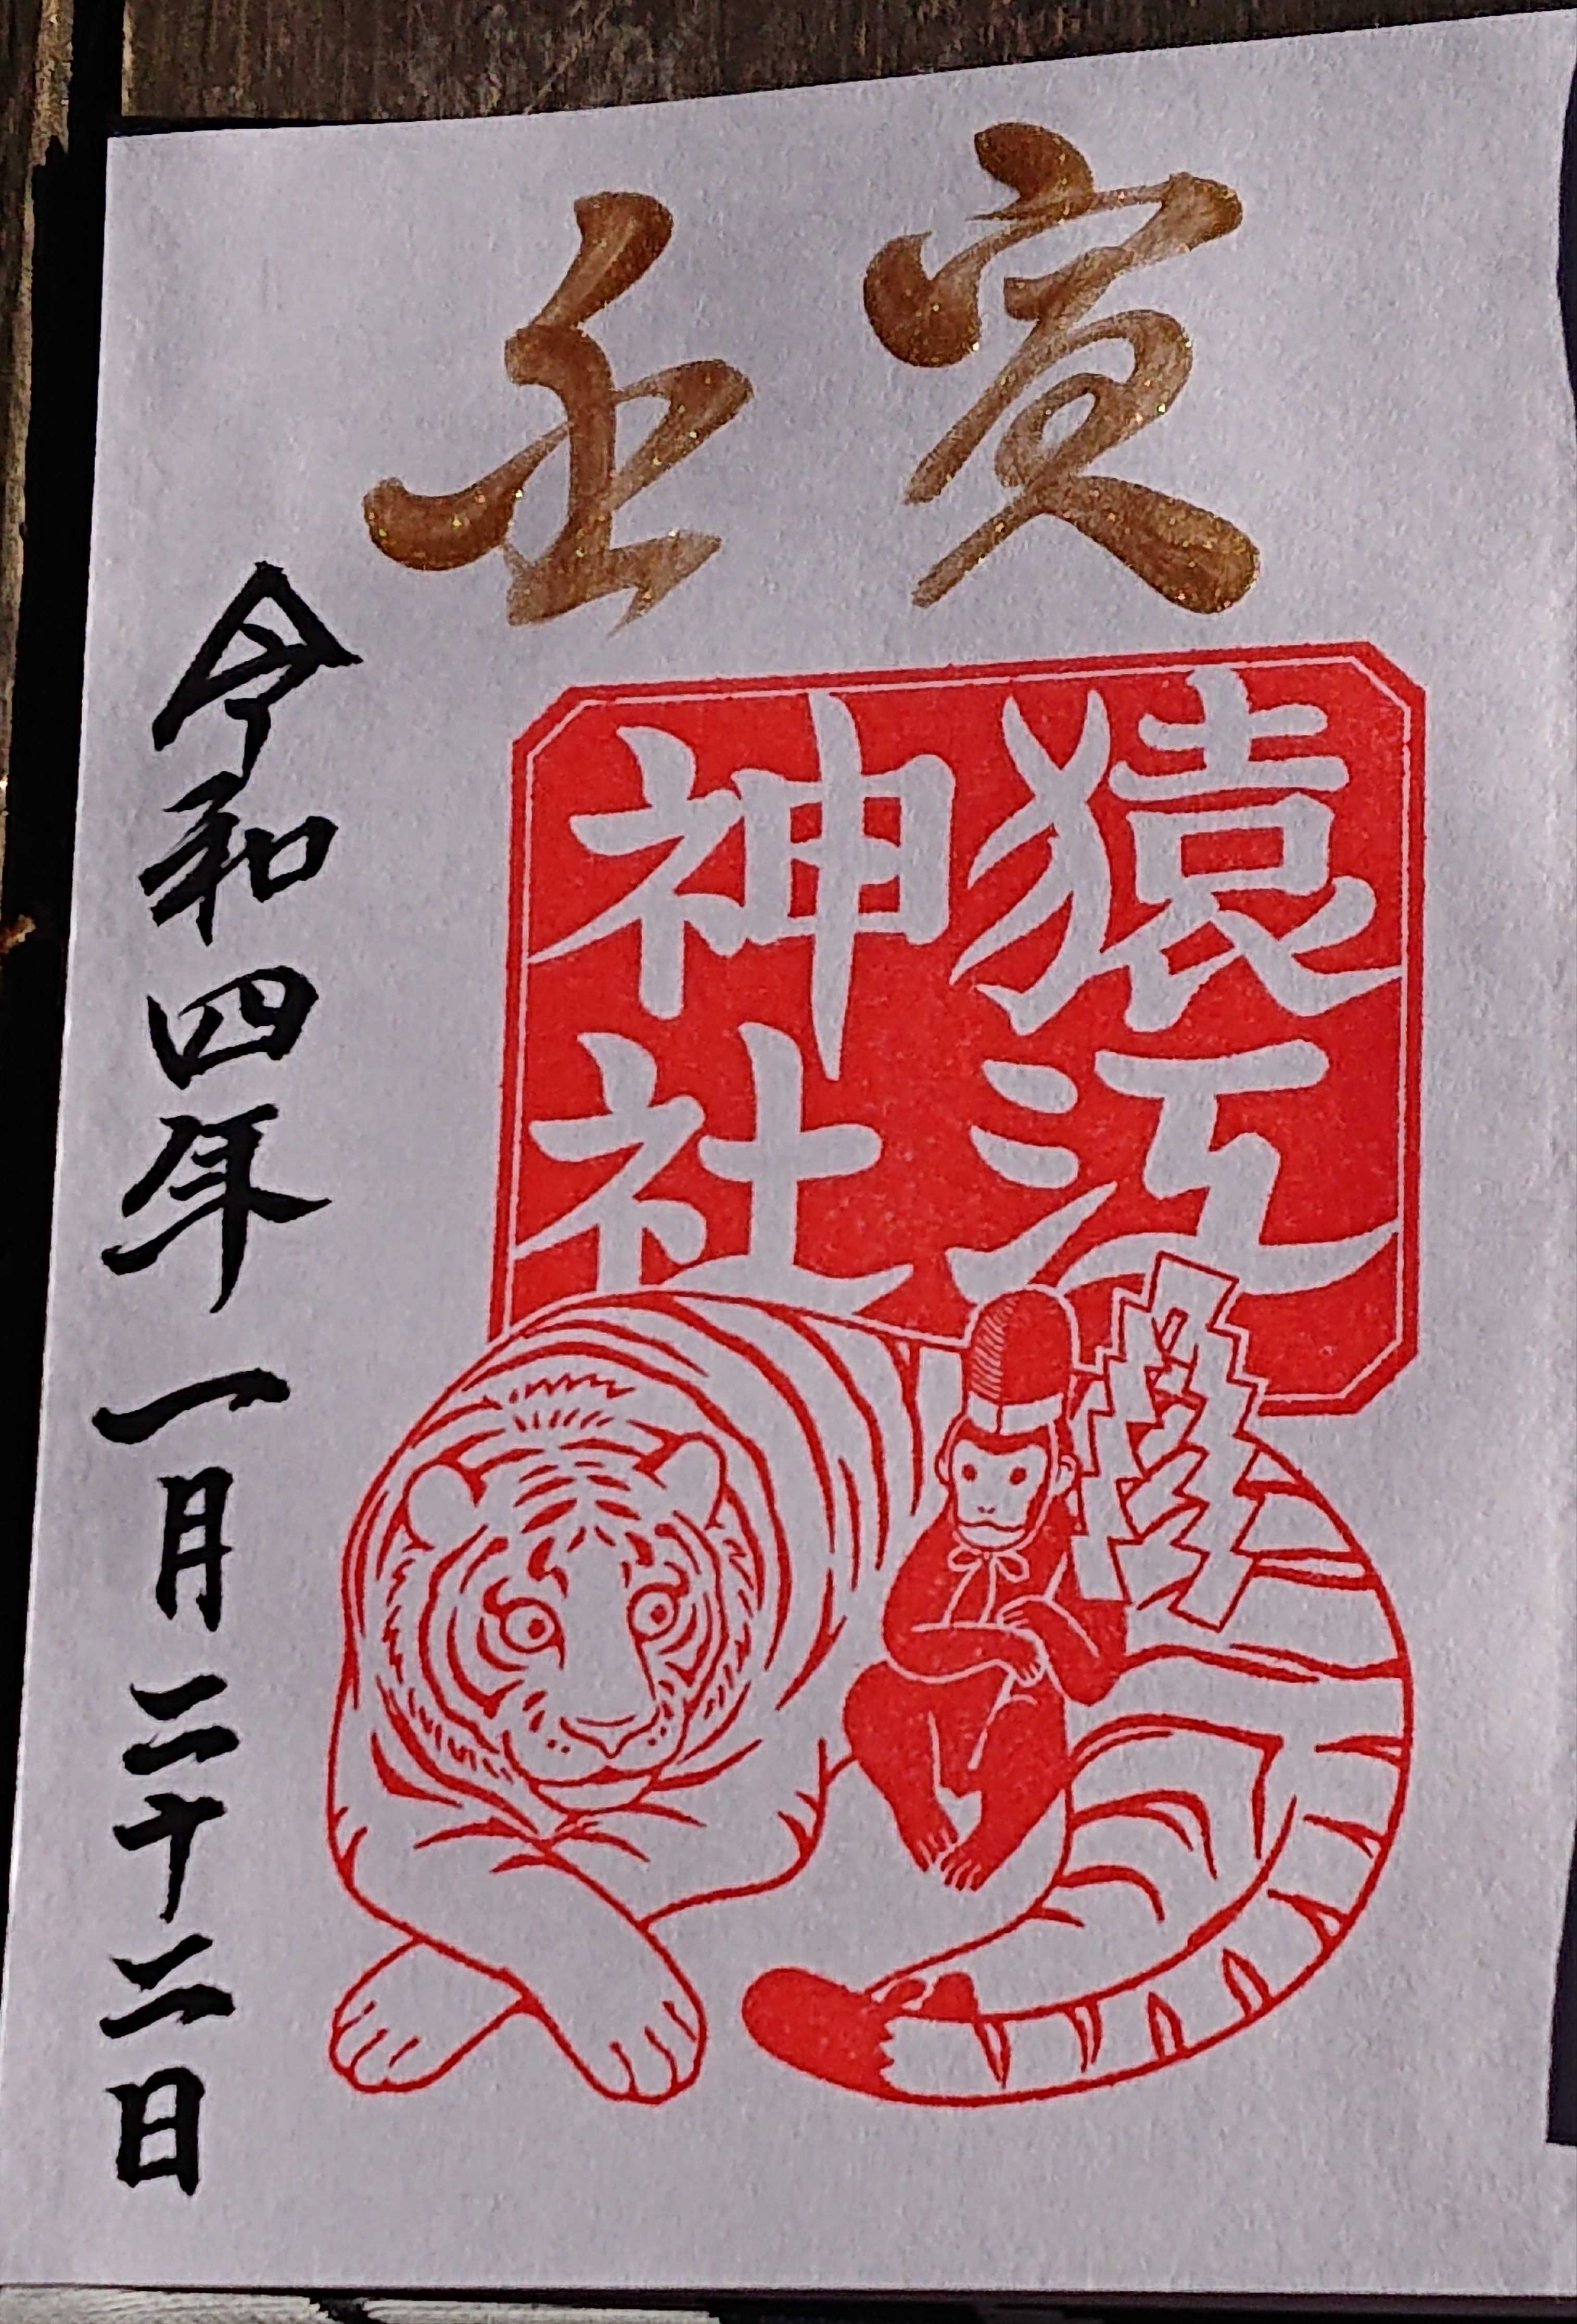 壬寅
猿江
神社
令和四年一月二十二日